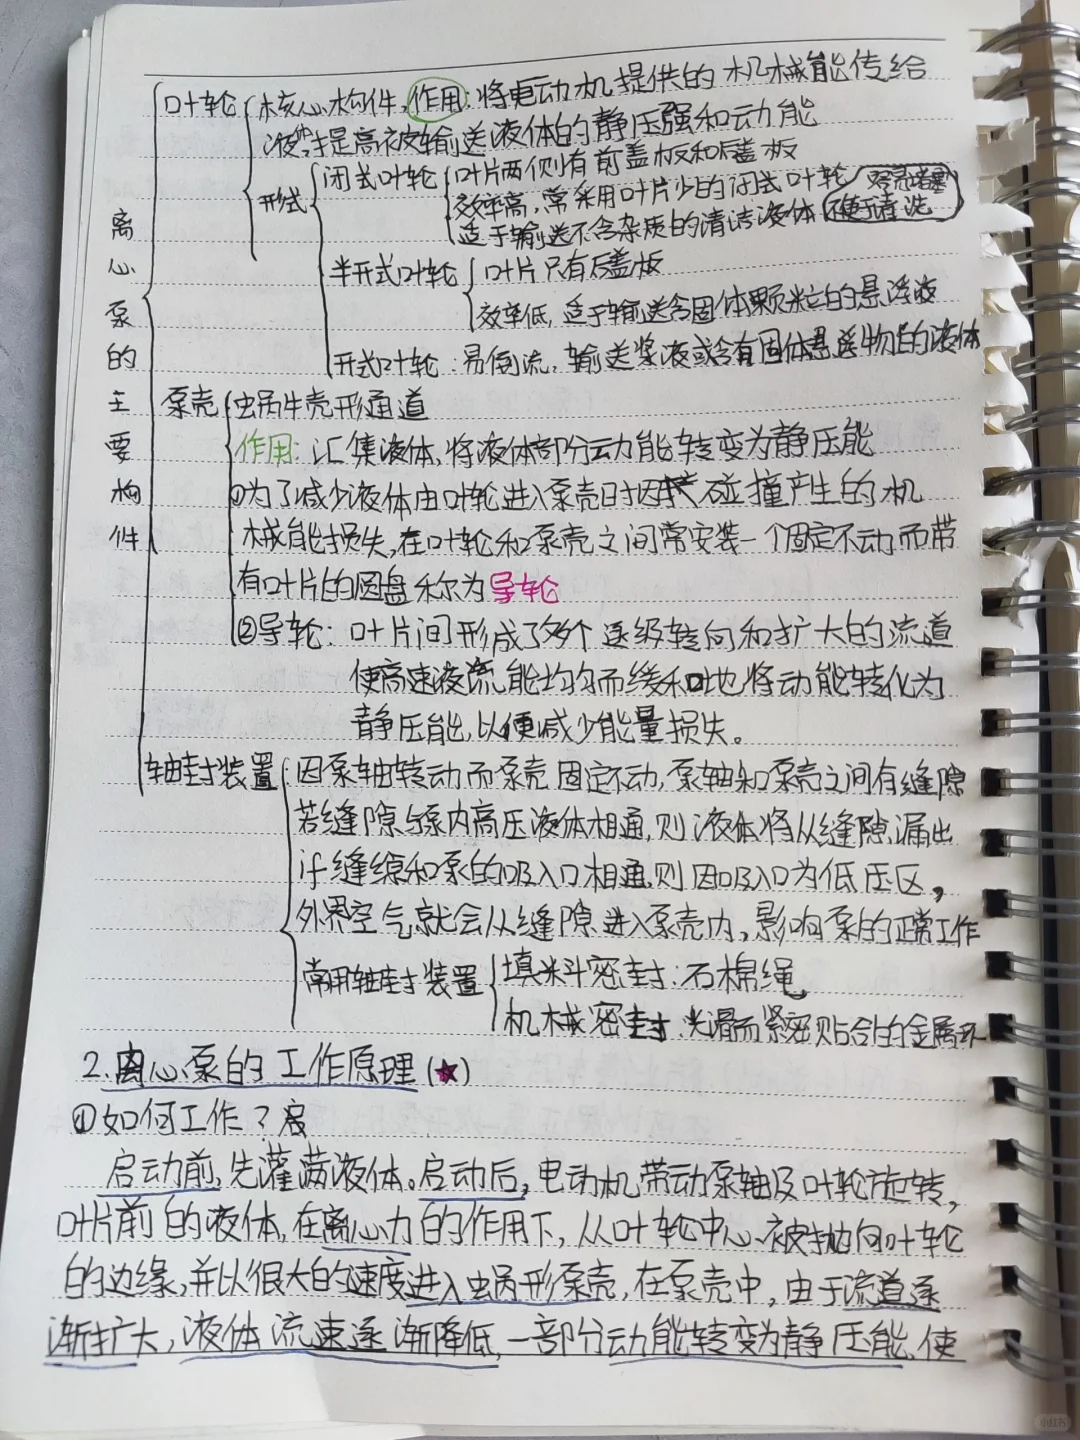 离心泵的主要构件
叶轮 核心构件,作用:将电动机提供的机械能传给
液体,提高被输送液体的静压强和动能
形式 闭式叶轮 叶片两侧有前盖板和后盖板
效率高,常采用叶片少的闭式叶轮
适于输送不含杂质的清洁液体
容易堵塞
不便于清洗
半开式叶轮 叶片只有后盖板
效率低,适于输送含固体颗粒的悬浮液
开式叶轮:易倒流,输送浆液或含有固体悬浮物的液体
泵壳 蜗牛壳形通道
作用:汇集液体,将液体部分动能转变为静压能
①为了减少液体由叶轮进入泵壳时因碰撞产生的机
械能损失,在叶轮和泵壳之间常安装一个固定不动而带
有叶片的圆盘称为导轮
②导轮:叶片间形成了多个逐级转向和扩大的流道
使高速液流能均匀而缓和地将动能转化为
静压能,以便减少能量损失。
轴封装置 因泵轴转动而泵壳固定不动,泵轴和泵壳之间有缝隙
若缝隙与泵内高压液体相通,则液体将从缝隙漏出
if缝缭和泵的吸入口相通,则因吸入口为低压区,
外界空气就会从缝隙进入泵壳内,影响泵的正常工作
常用轴封装置 填料密封:石棉绳
机械密封:光滑而紧密贴合的金属环
2.离心泵的工作原理(★)
①如何工作?
启动前,先灌满液体。启动后,电动机带动泵轴及叶轮旋转,
叶片前的液体,在离心力的作用下,从叶轮中心被抛向叶轮
的边缘,并以很大的速度进入蜗形泵壳,在泵壳中,由于流道逐
渐扩大,液体流速逐渐降低,一部分动能转变为静压能,使
小红书